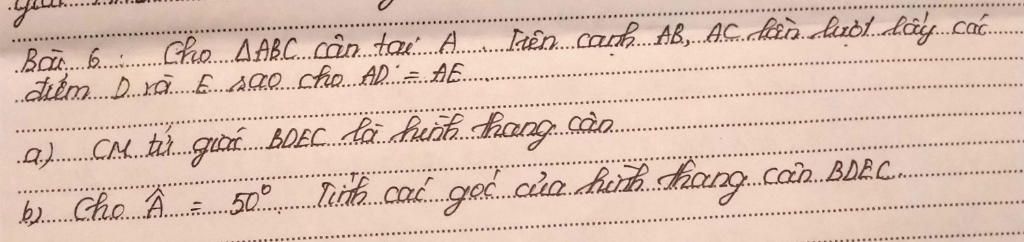 Bài 6 : Cho ΔABC cân tại A. Trên cạnh AB, AC lần lượt lấy các
điểm D và E sao cho AD = AE
a) CM tứ giác BDEC là hình thang cân
b) Cho Â = 50°. Tính các góc của hình thang cân BDEC.